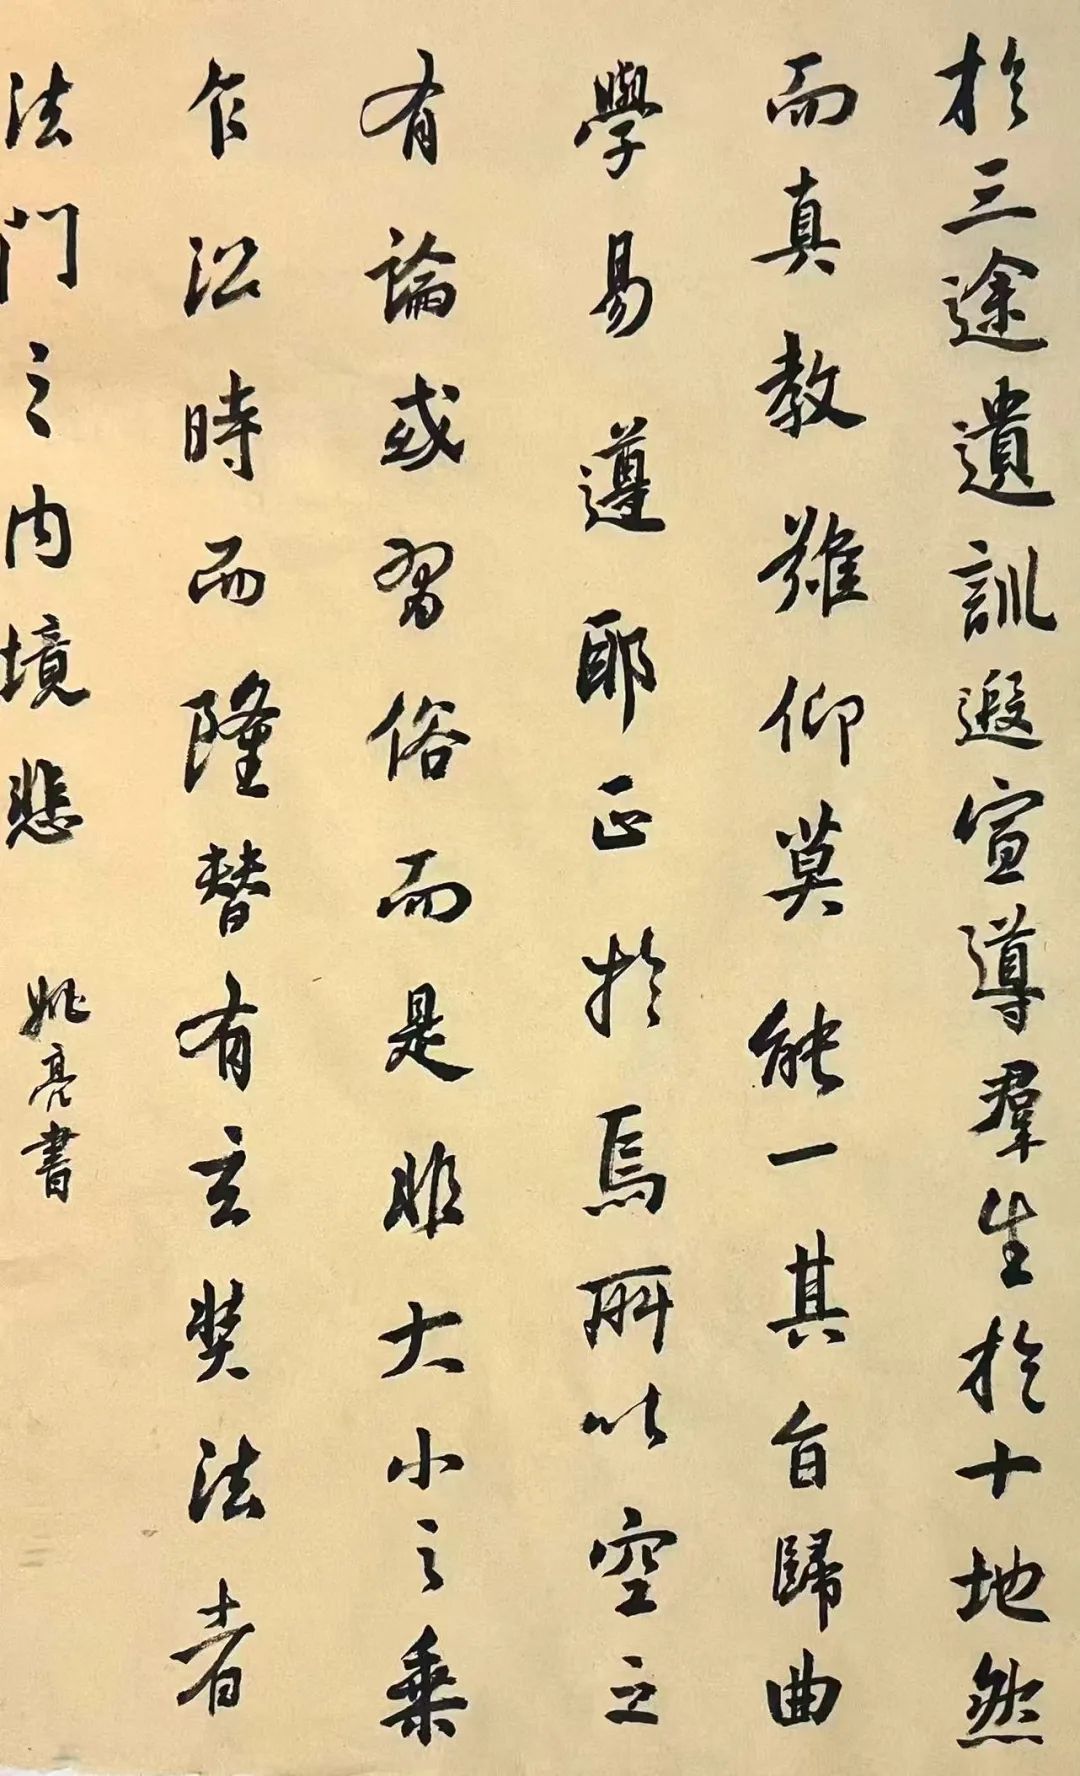 於三途遺訓遐宣導羣生於十地然
而真教難仰莫能一其旨歸曲
學易遵耶正於焉所以空之
有論或習俗而是非大小之乘
乍沿時而隆替有玄奘法者
法門之内境悲
姚亮書